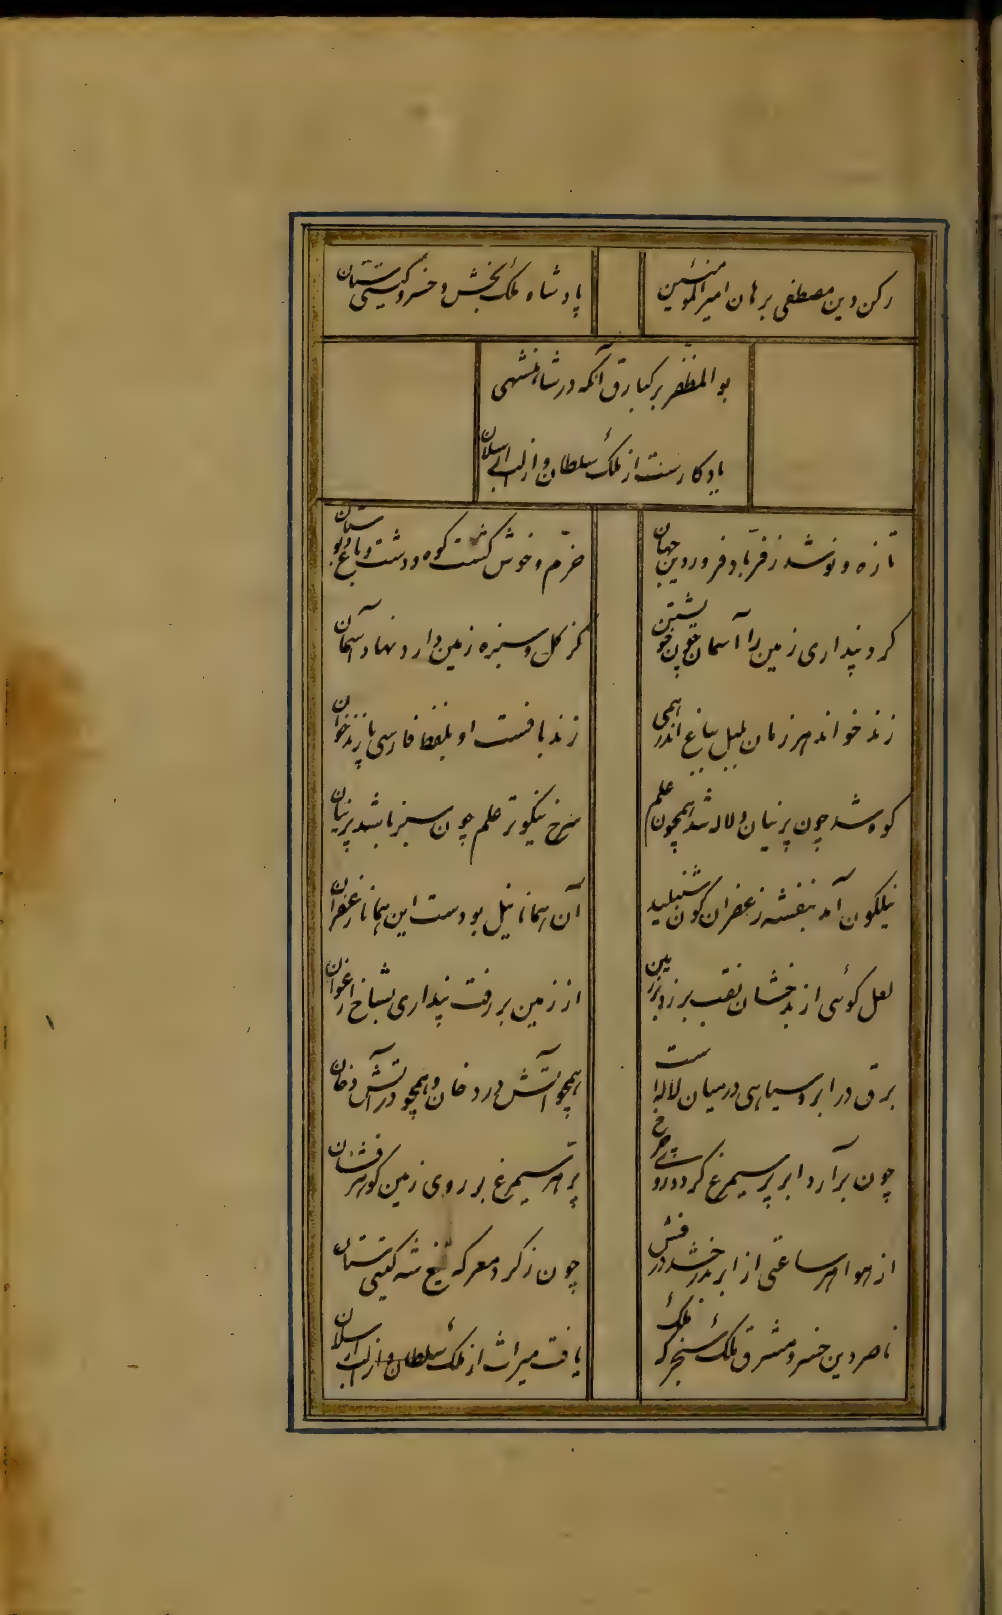 رکن دین مصطفی برهان امیرالمومنین
پادشاه ملک بخش و خسرو گیتی ستان
بوالمظفر برکیارق آنکه در شاهنشهی
یادکارست از ملک سلطان و از الب ارسلان
تازه و نو شد ز فر باد فروردین جهان
خرم و خوش کشت کوه و دشت و باغ و بوستان
کرد پنداری زمین را آسمان چون خویشتن
کز کل و سبزه زمین دارد نهاد آسمان
زند خواند هر زمان بلبل بباغ اندر همی
زند بافست او بلفظ فارسی یا زند خوان
کوه شد چون پرنیان و لاله شد همچون علم
سرخ نیکوتر علم چون سبز باشد پرنیان
نیلکون آمد بنفشه زعفران کون شنبلید
آن همانا نیل بودست این همانا زعفران
لعل کوئی از بدخشان نقب برزد بر زمین
از زمین بر رفت پنداری بشاخ ارغوان
برق در ابر و سیاهی در میان لاله است
همچو آتش در دخان و همچو در آتش دخان
چون برآرد ابر پر سیمرغ کردد روی چرخ
پر هر سیمرغ بر روی زمین کوهر فشان
از هوا هر ساعتی از ابر بدرخشد درفش
چون ز کرد معرکه تیغ شه کیتی ستان
ناصر دین خسرو مشرق ملک سنجر که ملک
یافت میراث از ملک سلطان و از الب ارسلان